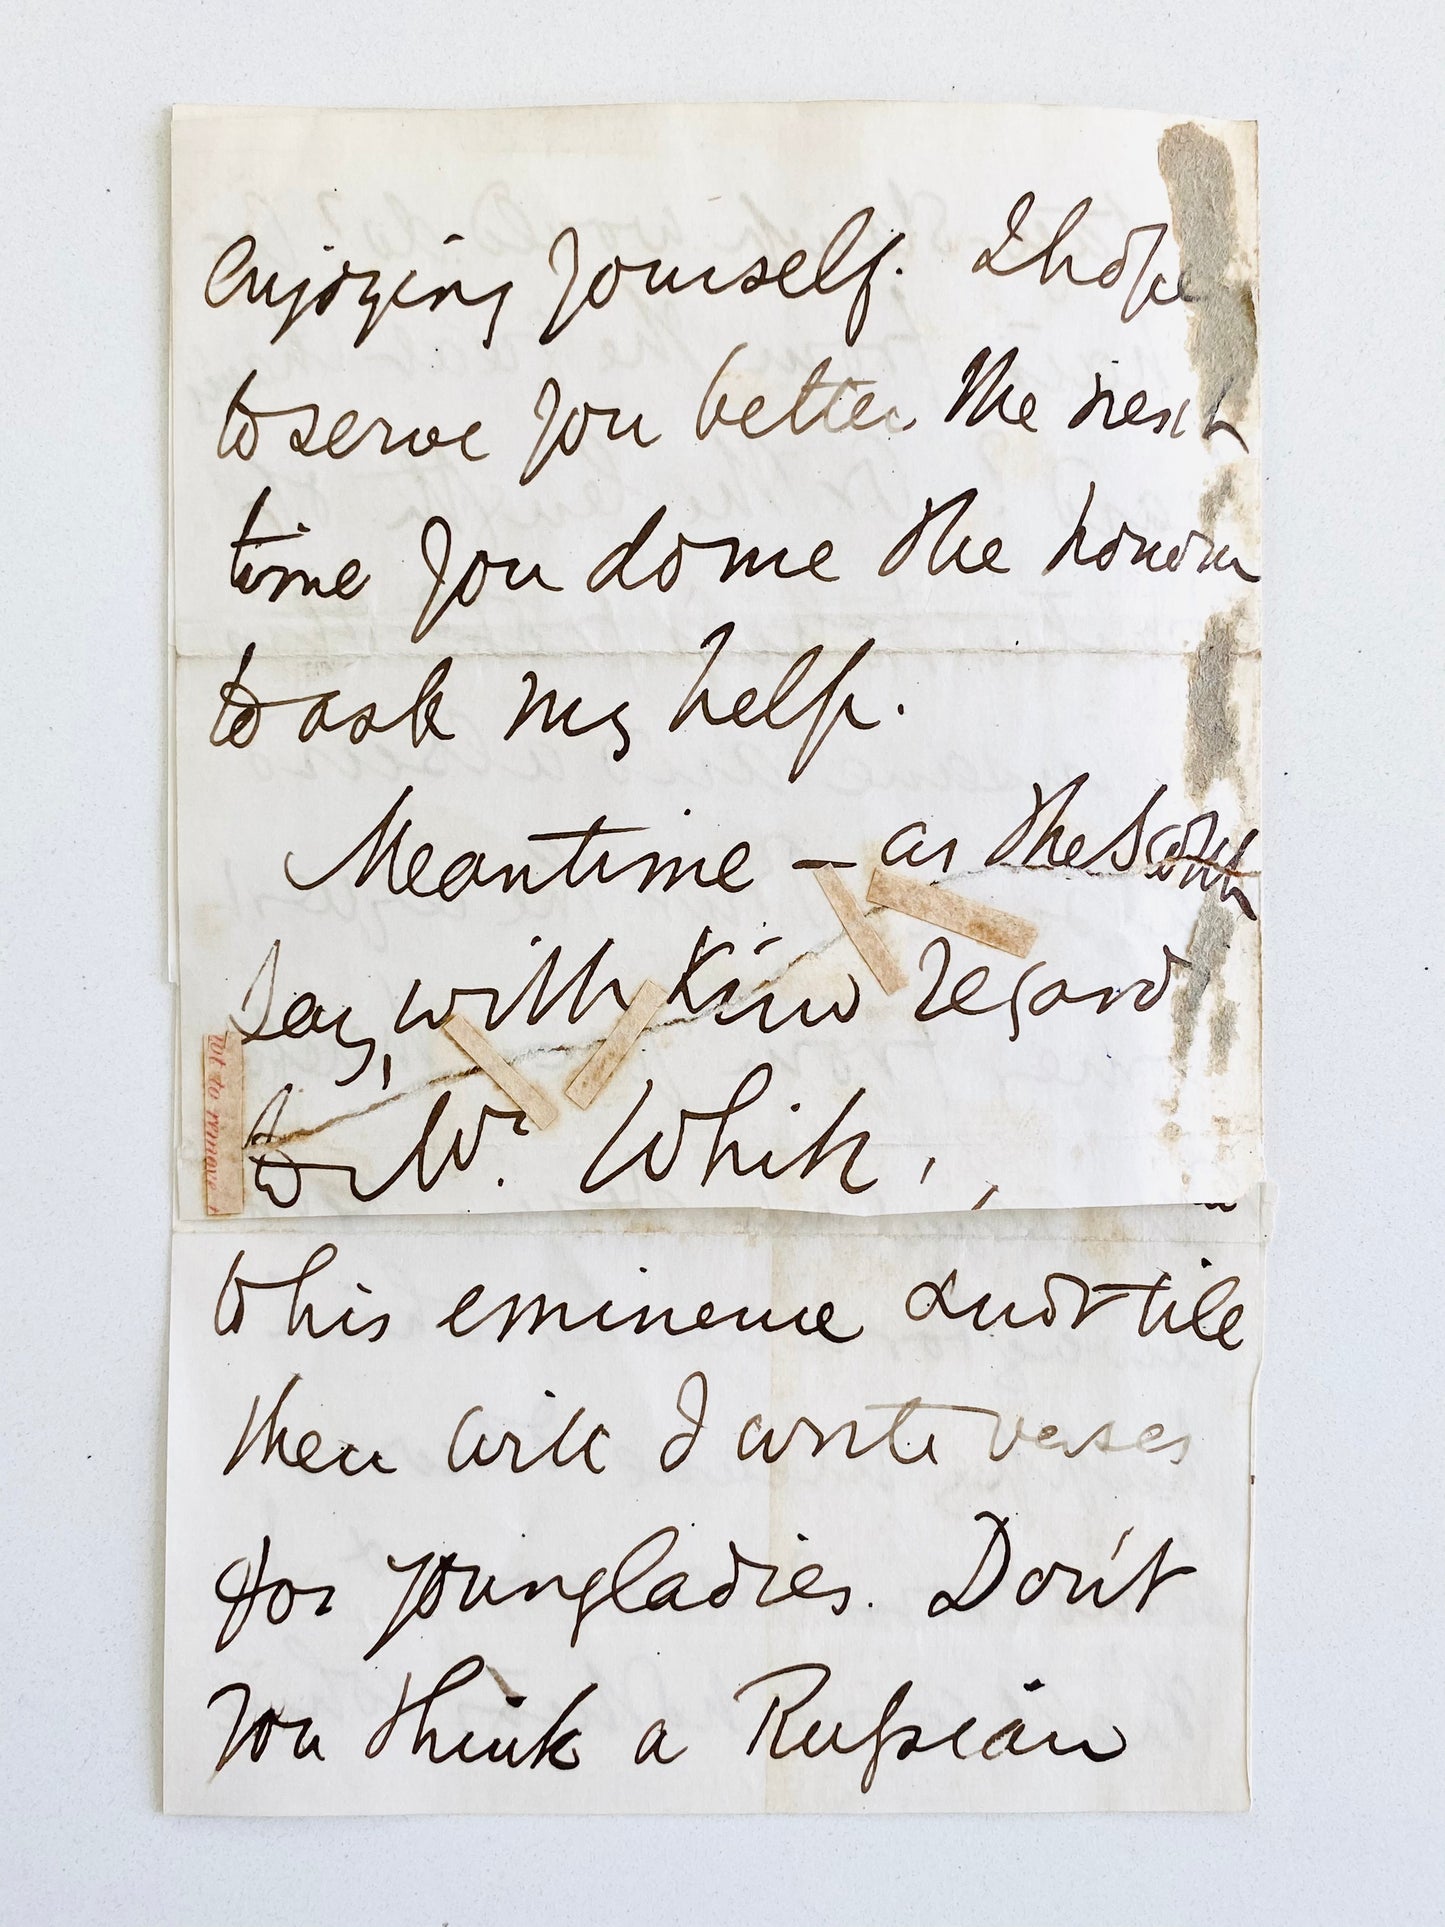 enjoying yourself. I hope
to serve you better the next
time you do me the honour
to ask my help.
Meantime — as the Scotch
say, with kind regard
to Mr. White,
to his eminence and till
then will I write verses
for young ladies. Don't
you think a Russian
not to remove